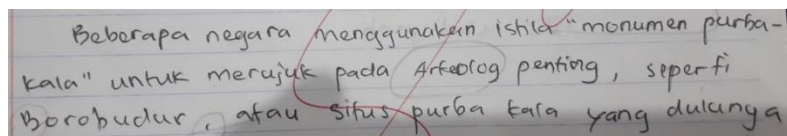 Beberapa negara menggunakan istila "monumen purba-
kala" untuk merujuk pada Arteolog penting, seperti
Borobudur, atau situs purba kala yang dulunya